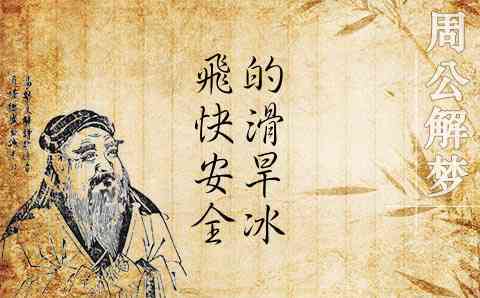 周公解梦
的滑旱冰
飛快安全